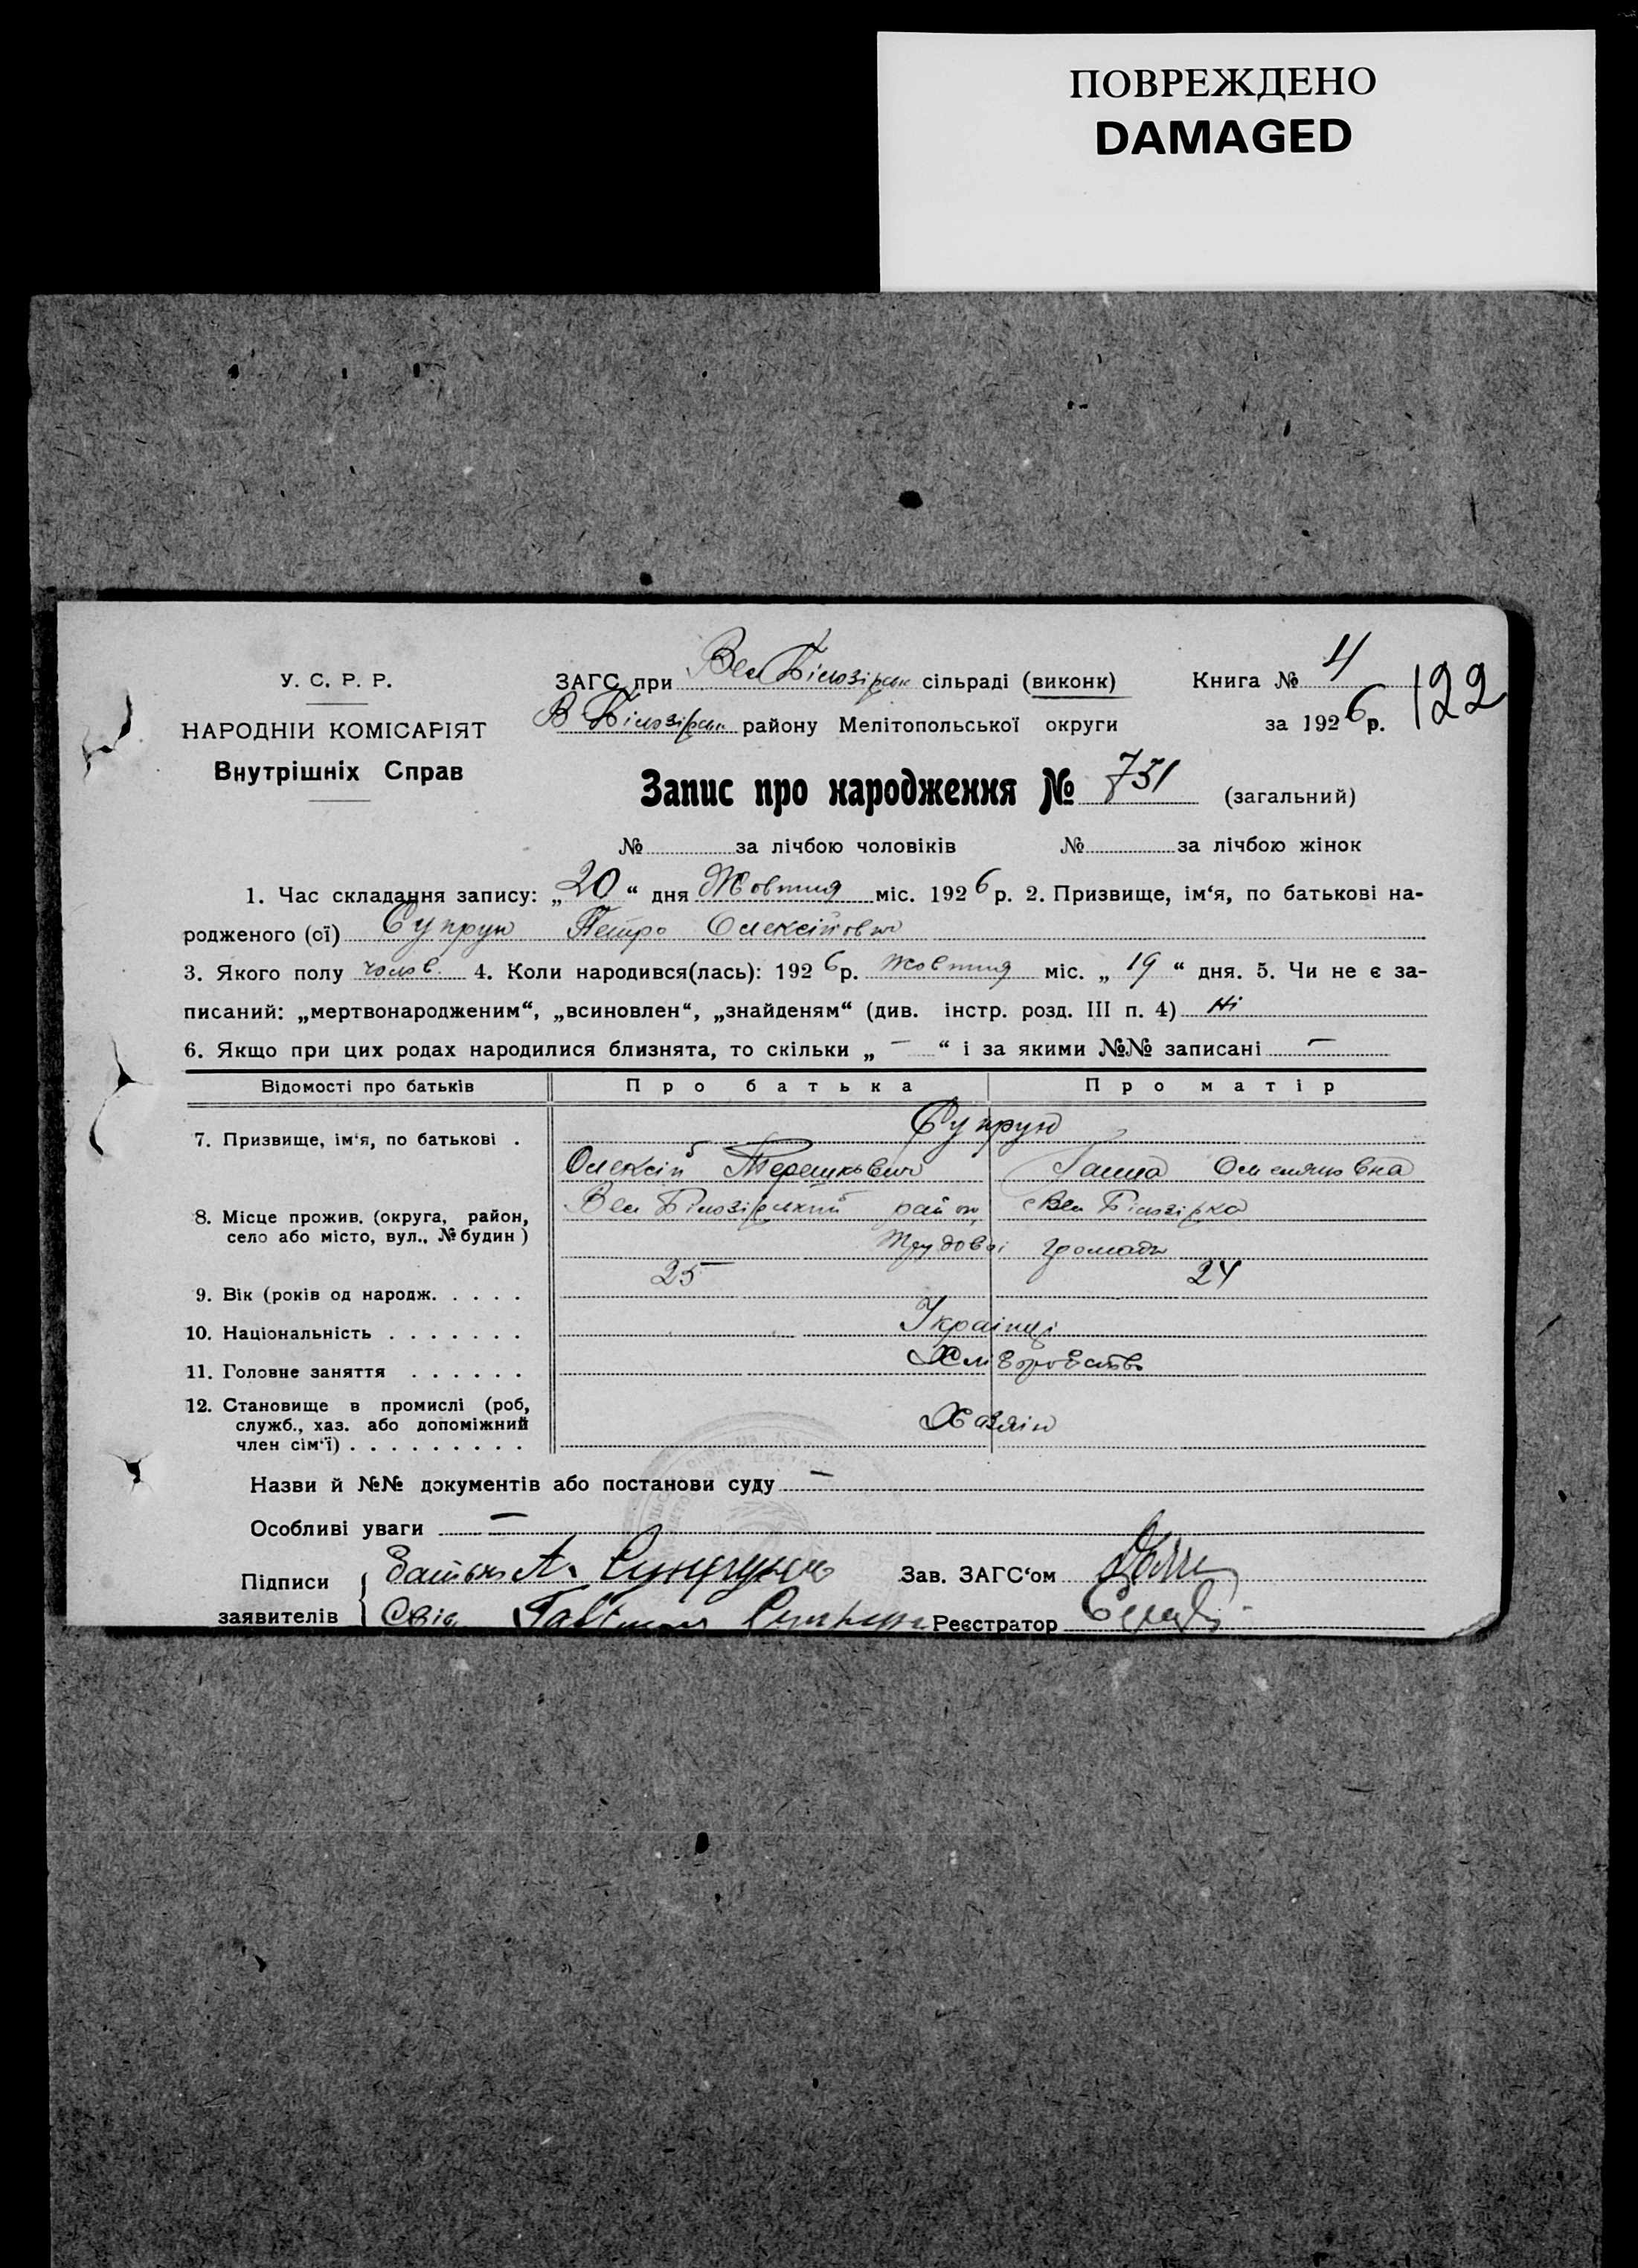 ПОВРЕЖДЕНО
DAMAGED
У. С. Р. Р.
НАРОДНІЙ КОМІСАРІЯТ
Внутрішніх Справ
ЗАГС при Вел Білозірськ сільраді (виконк)
В Білозірськ району Мелітопольської округи
Книга № 4
за 1926 р.
122
Запис про народження № 751 (загальний)
№ за лічбою чоловіків № за лічбою жінок
1. Час складання запису: „20“ дня Жовтня міс. 1926 р. 2. Призвище, ім‘я, по батькові на-
родженого (ої) Супрун Петро Олексійович
3. Якого полу чолов. 4. Коли народився(лась): 1926 р. Жовтня міс. „19“ дня. 5. Чи не є за-
писаний: „мертвонародженим“, „всиновлен“, „знайденям“ (див. інстр. розд. III п. 4) Ні
6. Якщо при цих родах народилися близнята, то скільки „ — “ і за якими №№ записані —
Відомості про батьків Про батька Про матір
7. Призвище, ім‘я, по батькові . Супрун
Олексій Терешкович Ганна Омеляновна
8. Місце прожив. (округа, район,
село або місто, вул., № будин)
Вел Білозірський район, Вел Білозірка
Трудової громади
9. Вік (років од народж. . . . . 25 24
10. Національність . . . . . . . Українці
11. Головне заняття . . . . . . Хліборобство
12. Становище в промислі (роб,
служб., хаз. або допоміжний
член сім‘ї) . . . . . . . . . Хазяїн
Назви й №№ документів або постанови суду —
Особливі уваги —
Підписи
заявителів
Батько А. Супрун
Свід. Супрун
Зав. ЗАГС‘ом
Реєстратор